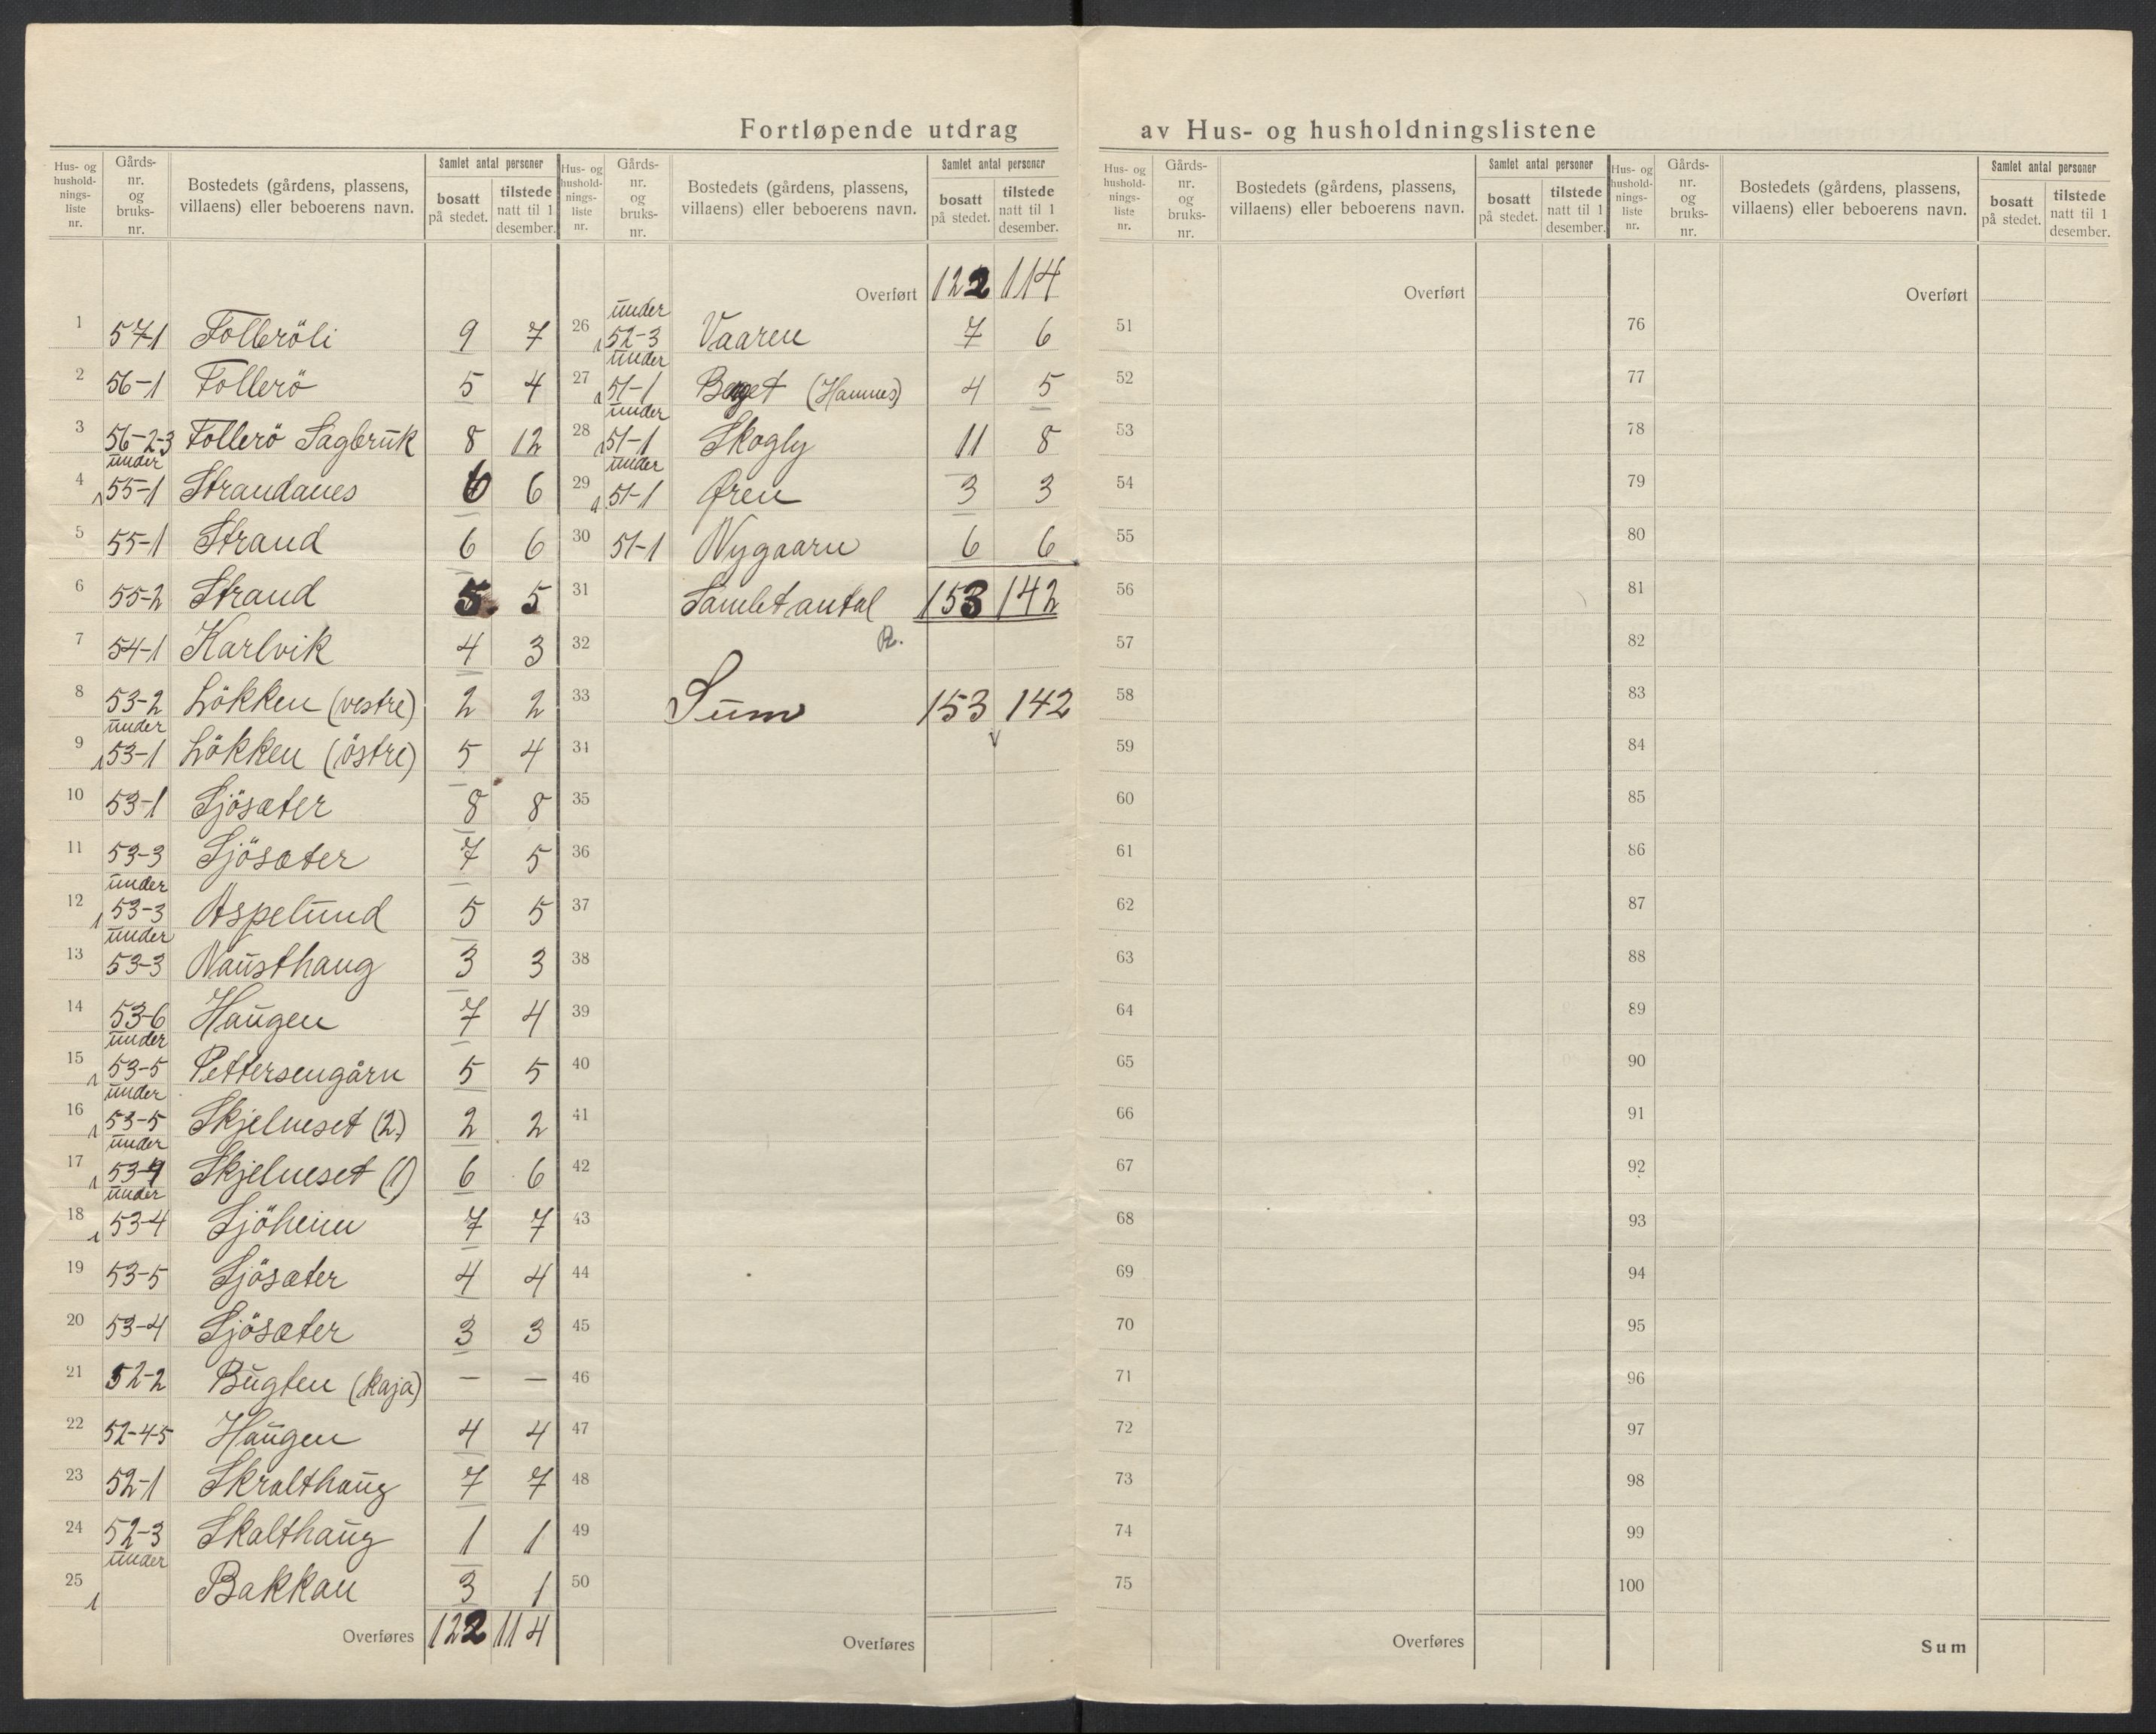 Fortløpende utdrag av Hus- og husholdningslistene
Hus- og hushold-nings-liste nr. Gårds-nr. og bruks-nr. Bostedets (gårdens, plassens, villaens) eller beboerens navn. Samlet antal personer bosatt på stedet. tilstede natt til 1 desember.
1 57-1 Folleröli 9 7
2 56-1 Follerö 5 4
3 56-2-3 Follerö Sagbruk 8 12
4 under 55-1 Strandanes 6 6
5 55-1 Strand 6 6
6 55-2 Strand 5 5
7 54-1 Karlvik 4 3
8 53-2 Lökken (vestre) 2 2
9 under 53-1 Lökken (östre) 5 4
10 53-1 Sjösæter 8 8
11 53-3 Sjösæter 7 5
12 under 53-3 Aspelund 5 5
13 under 53-3 Nausthaug 3 3
14 53-6 Haugen 7 4
15 under 53-5 Pettersengårn 5 5
16 under 53-5 Skjelneset (2) 2 2
17 under 53-4 Skjelneset (1) 6 6
18 under 53-4 Sjöheim 7 7
19 53-5 Sjösæter 4 4
20 53-4 Sjösæter 3 3
21 52-2 Bugten (kaja) — —
22 52-4-5 Haugen 4 4
23 52-1 Skralthaug 7 7
24 52-3 Skalthaug 1 1
25 under Bakkan 3 1
Overføres 122 114
Hus- og hushold-nings-liste nr. Gårds-nr. og bruks-nr. Bostedets (gårdens, plassens, villaens) eller beboerens navn. Samlet antal personer bosatt på stedet. tilstede natt til 1 desember.
Overført 122 114
26 under 52-3 Vaaren 7 6
27 under 51-1 Berget (Hamnes) 4 5
28 under 51-1 Skogly 11 8
29 under 51-1 Øren 3 3
30 51-1 Nygaarn 6 6
31 Samlet antal 153 142
32 R.
33 Sum 153 142
34
35
36
37
38
39
40
41
42
43
44
45
46
47
48
49
50
Overføres
Hus- og hushold-nings-liste nr. Gårds-nr. og bruks-nr. Bostedets (gårdens, plassens, villaens) eller beboerens navn. Samlet antal personer bosatt på stedet. tilstede natt til 1 desember.
Overført
51
52
53
54
55
56
57
58
59
60
61
62
63
64
65
66
67
68
69
70
71
72
73
74
75
Overføres
Hus- og hushold-nings-liste nr. Gårds-nr. og bruks-nr. Bostedets (gårdens, plassens, villaens) eller beboerens navn. Samlet antal personer bosatt på stedet. tilstede natt til 1 desember.
Overført
76
77
78
79
80
81
82
83
84
85
86
87
88
89
90
91
92
93
94
95
96
97
98
99
100
Sum